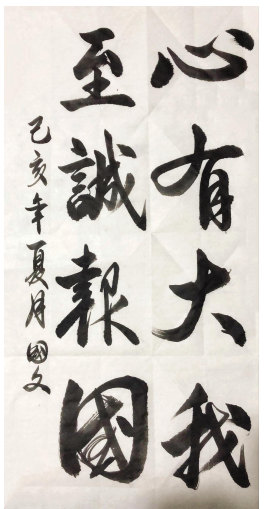 心有大我
至誠報國
己亥年夏月國文